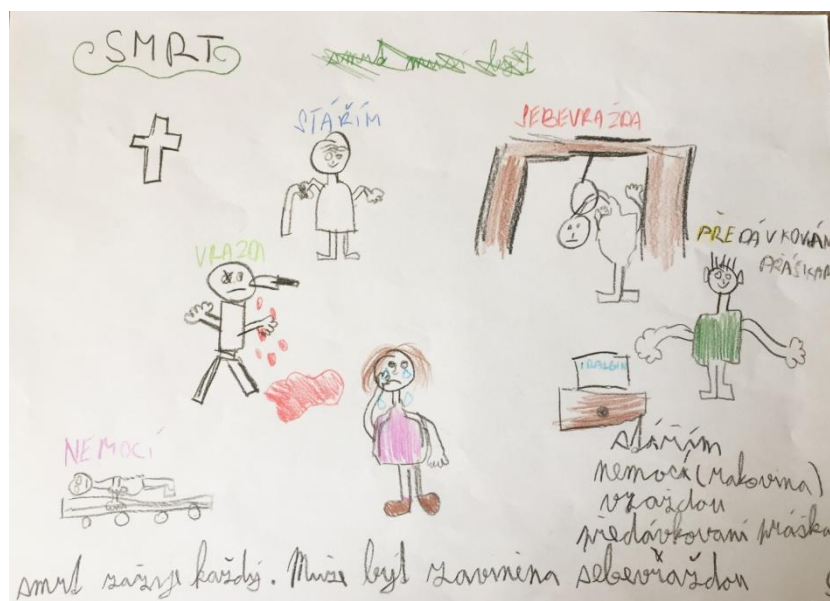 SMRT
smrt musí být
STÁŘÍM
SEBEVRAŽDA
VRAŽDA
PŘEDÁVKOVÁN
PRÁŠKA
IBALGIN
NEMOCÍ
stářím
nemocí (rakovina)
vraždou
předávkovaní práška
smrt zažije každý. Může být zaviněna sebevraždou